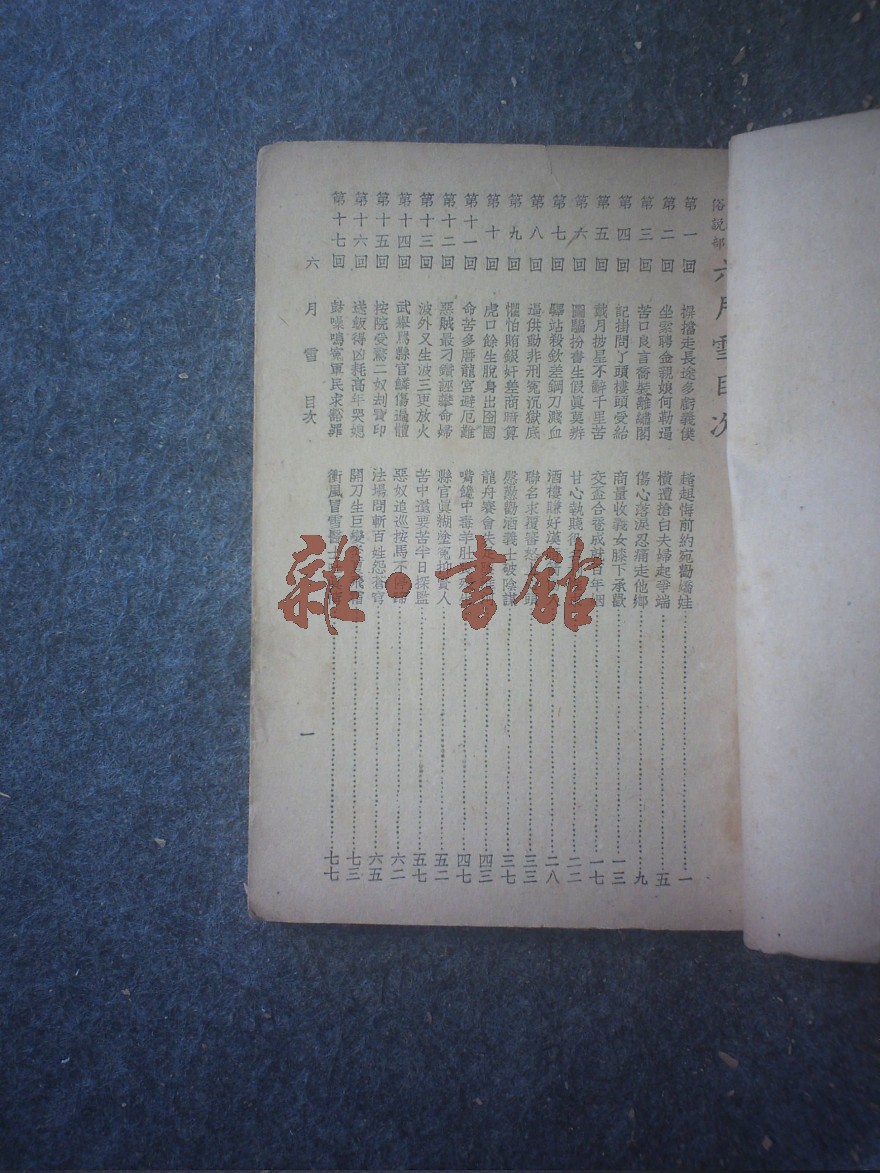 俗說部 六月雪目次
第一回 摒擋走長途多虧義僕 趦趄悔前約宛勸嬌娃 一
第二回 坐索聘金親娘何勒逼 橫遭搶白夫婦起爭端 五
第三回 苦口良言喬裝離繡閣 傷心落淚忍痛走他鄉 九
第四回 記掛問丫頭樓頭受給 商量收義女膝下承歡 一三
第五回 戴月披星不辭千里苦 交盃合巹成就百年姻 一七
第六回 圖騙扮書生假眞莫辨 甘心執賤役 二二
第七回 驛站殺欽差鋼刀濺血 酒樓賺好漢 二八
第八回 逼供動非刑冤沉獄底 聯名求覆審 三三
第九回 懼怕賄銀奸差商暗算 慇懃勸酒義士破陰謀 三七
第十回 虎口餘生脫身出囹圄 龍舟賽會 四三
第十一回 命苦多磨龍宮避厄難 嘴饞中毒羊肚 四七
第十二回 惡賊最刁鑽誣攀命婦 縣官眞糊塗冤 人 五二
第十三回 波外又生波三更放火 苦中還要苦半日探監 五七
第十四回 武舉駡縣官鱗傷遍體 惡奴追巡按馬不停蹄 六二
第十五回 按院受驚二奴刦寶印 法場問斬百姓怨蒼穹 六五
第十六回 送飯得凶耗高年哭媳 開刀生巨變 七三
第十七回 鼓噪鳴冤軍民求豁罪 衝風冒雪 七七
六月雪 目次 一
雜·書館